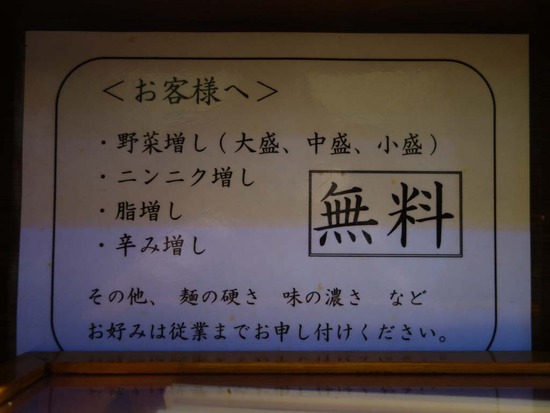 ＜お客様へ＞
・野菜増し（大盛、中盛、小盛）
・ニンニク増し
・脂増し
・辛み増し
無料
その他、 麺の硬さ 味の濃さ など
お好みは従業までお申し付けください。